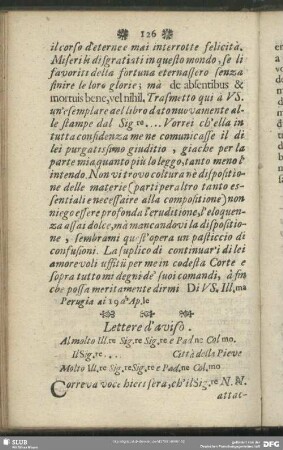 126
il corso d'eternee mai interrotte felicità.
Miseri li disgratiati in questo mondo, se li
favoriti della fortuna eternassero senza
finire le loro glorie; mà de absentibus &
mortuis bene, vel nihil, Trasmetto qui à VS.
un'esemplare del libro dato nuovamente al-
le stampe dal Sig.re... Vorrei ch'ella in
tutta confidenza me ne comunicasse il di
lei purgatissimo giuditio, giache per la
parte mia, quanto più lo leggo, tanto meno l'
intendo. Non vi trovo coltura nè dispositio-
ne delle materie (parti per altro tanto es-
sentiali e necessaire alla compositione) non
niego essere profonda l'eruditione, l'eloquen-
za assai dolce, mà mancandovi la dispositio-
ne, sembrami quest'opera un pasticcio di
confusioni. La suplico di continuar'i di lei
amorevoli uffitii per me in codesta Corte e
sopra tutto mi degni de' suoi comandi, à fin
che possa meritamente dirmi Di VS. Ill.ma
Perugia ai 19 ab Ap.le
Lettere d'avisò.
Al molto Ill.re Sig.re Sig.re e Pad.ne Col.mo.
Il Sig.re... Città della Pieve
Molto Ill.re Sig.re Sig.re e Pad.ne Col.mo.
Correva voce hieri sera, ch'il Sig.re N. N.
attac-
SLUB